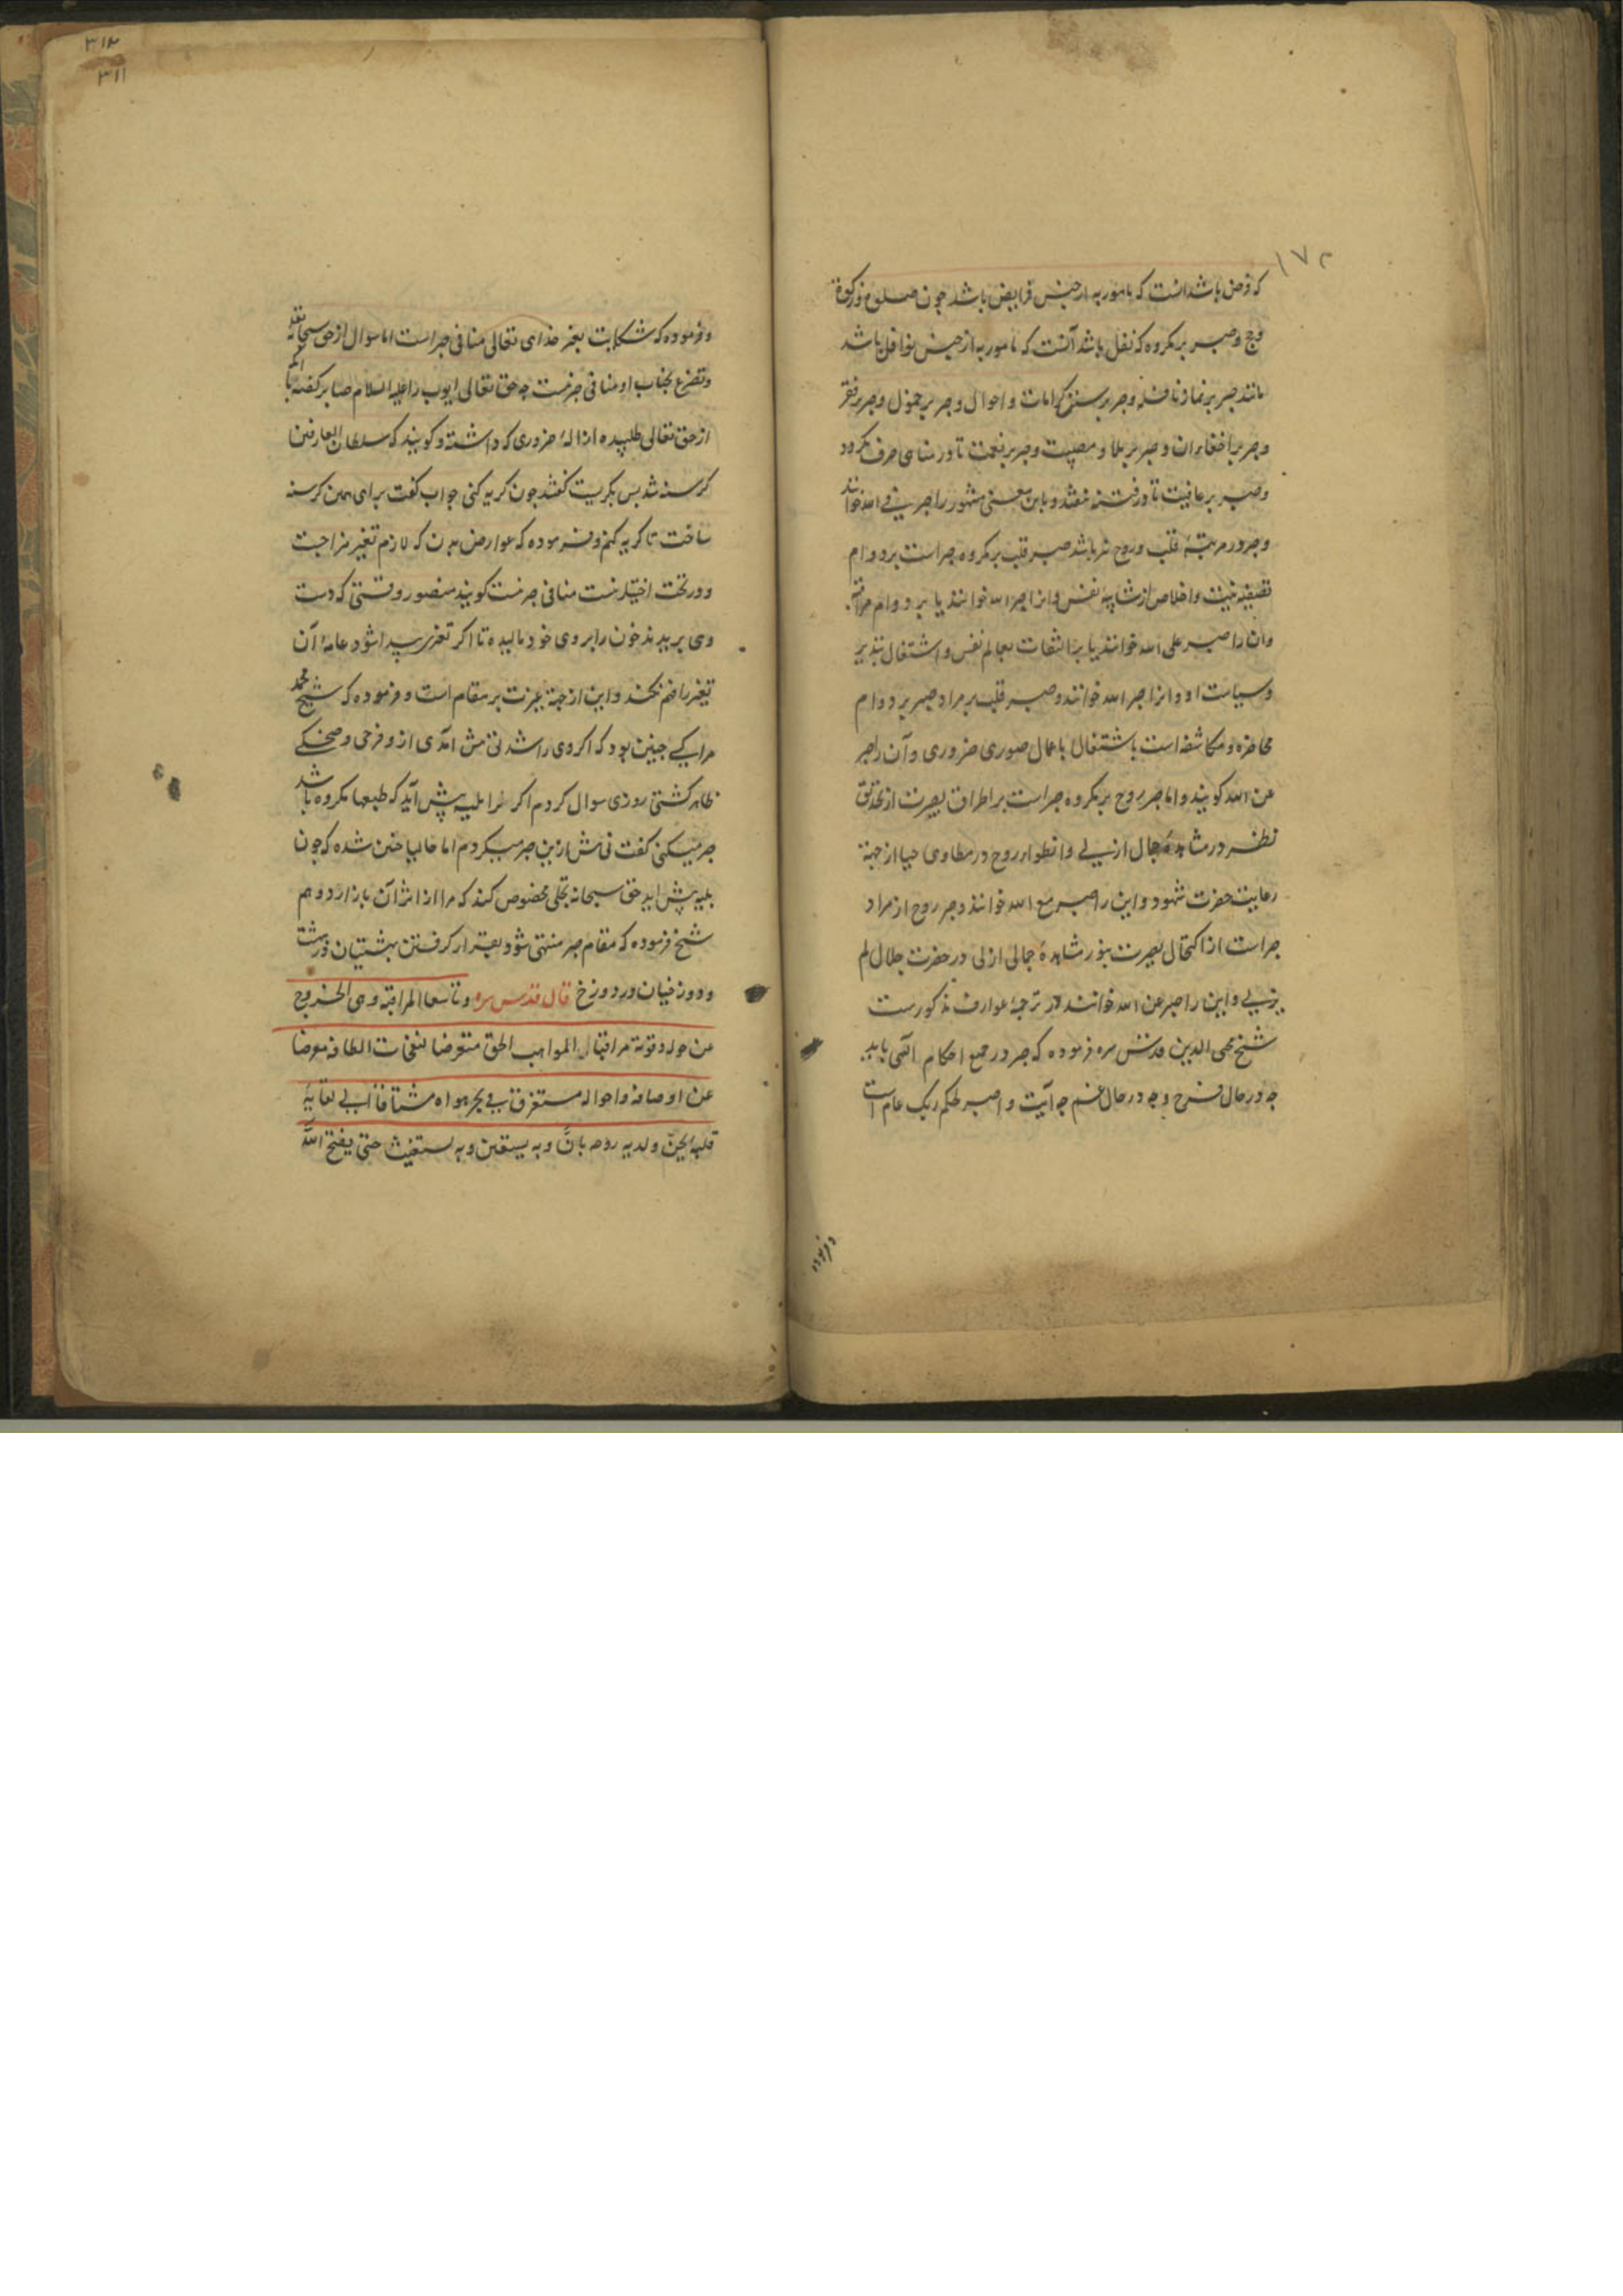 ۱۷۲
که فرض باشد آنست که مامور به از جنس فرایض باشد چون صلوة و زکوة
و حج و صبر بر مکروه که نفل باشد آنست که مامور به از جنس نوافل باشد
مانند صبر بر نماز نافله و صبر بر ستر کرامات و احوال و صبر بر خمول و صبر بر فقر
و صبر بر اخفاء آن و صبر بر بلا و مصیبت و صبر بر نعمت تا در مناهی صرف نکردد
و صبر بر عافیت تا در فتنه نیفتد و باین معنی مشهور را صبر فی الله خوانند
و صبر در مرتبهٔ قلب و روح نیز باشد صبر قلب بر مکروه صبر است بر دوام
تصفیه نیت و اخلاص از شایبه نفس و انرا صبر لله خوانند یا بر دوام مراقبه
و ان را صبر علی الله خوانند یا بر التفات بعالم نفس و اشتغال بتدبیر
و سیاست او و انرا صبر الله خوانند و صبر قلب بر مراد صبر بر دوام
محاضره و مکاشفه است باشتغال باعمال صوری ضروری و آن را صبر
عن الله کویند و اما صبر روح بر مکروه صبر است بر اطراق بصیرت از تحدیق
نظر در مشاهدهٔ جمال ازلی و انطواء روح در مطاوی حیا از جهة
رعایت حضرت شهود و این را صبر مع الله خوانند و صبر روح از مراد
صبر است از اکتحال بصیرت بنور مشاهدهٔ جمالی ازلی در حضرت جلال لم
یزلی و این را صبر عن الله خوانند در ترجمهٔ عوارف مذکورست
شیخ محیی الدین قدس سره فرموده که صبر در جمیع احکام الهی باید
چه در حال فرح و چه در حال غم چه آیت و اصبر لحکم ربک عام است
و فرموده
۳۱۲
۳۱۱
و فرموده که شکایت بغیر خدای تعالی منافی صبر است اما سوال از حق سبحانه
و تضرع بجناب او منافی صبر نیست چه حق تعالی ایوب را علیه السلام صابر کفته با آنکه
از حق تعالی طلبیده ازالهٔ ضرری که داشته و کویند که سلطان العارفین
کرسنه شد بس بکریست کفتند چون کریه کنی جواب کفت برای همین کرسنه
ساخت تا کریه کنم و فرموده که عوارض بدن که لازم تغیر مزاجست
و در تحت اختیار نیست منافی صبر نیست کویند منصور وقتی که دست
وی بریدند خون را بر روی خود مالیده تا اکر تغیری پیدا شود عامه آن
تغیر را فهم نکنند و این از جهة غیرت بر مقام است و فرموده که شیخ محمد
مراکی چنین بود که اکر وی را شدتی پیش آمدی ازو فرحی و ضحکی
ظاهر کشتی روزی سوال کردم اکر ترا بلیه پیش آید که طبعا مکروه باشد
صبر میکنی کفت پیش ازین صبر میکردم اما حالیا چنین شده که چون
بلیه پیش اید حق سبحانه تجلی مخصوص کند که مرا از اثر آن باز دارد و هم
شیخ فرموده که مقام صبر منتهی شود بقرار کرفتن بهشتیان در بهشت
و دوزخیان در دوزخ قال قدس سره و تاسعها المراقبة و هی الخروج
عن حوله و قوته مراقبا لمواهب الحق متعرضا لنفحات الطافه معرضا
عن اوصافه و احواله مستغرقا فی بحر هواه مشتاقا الی لقائه
قلبه یحن و لدیه روحه بان و به یستعین و به یستغیث حتی یفتح الله